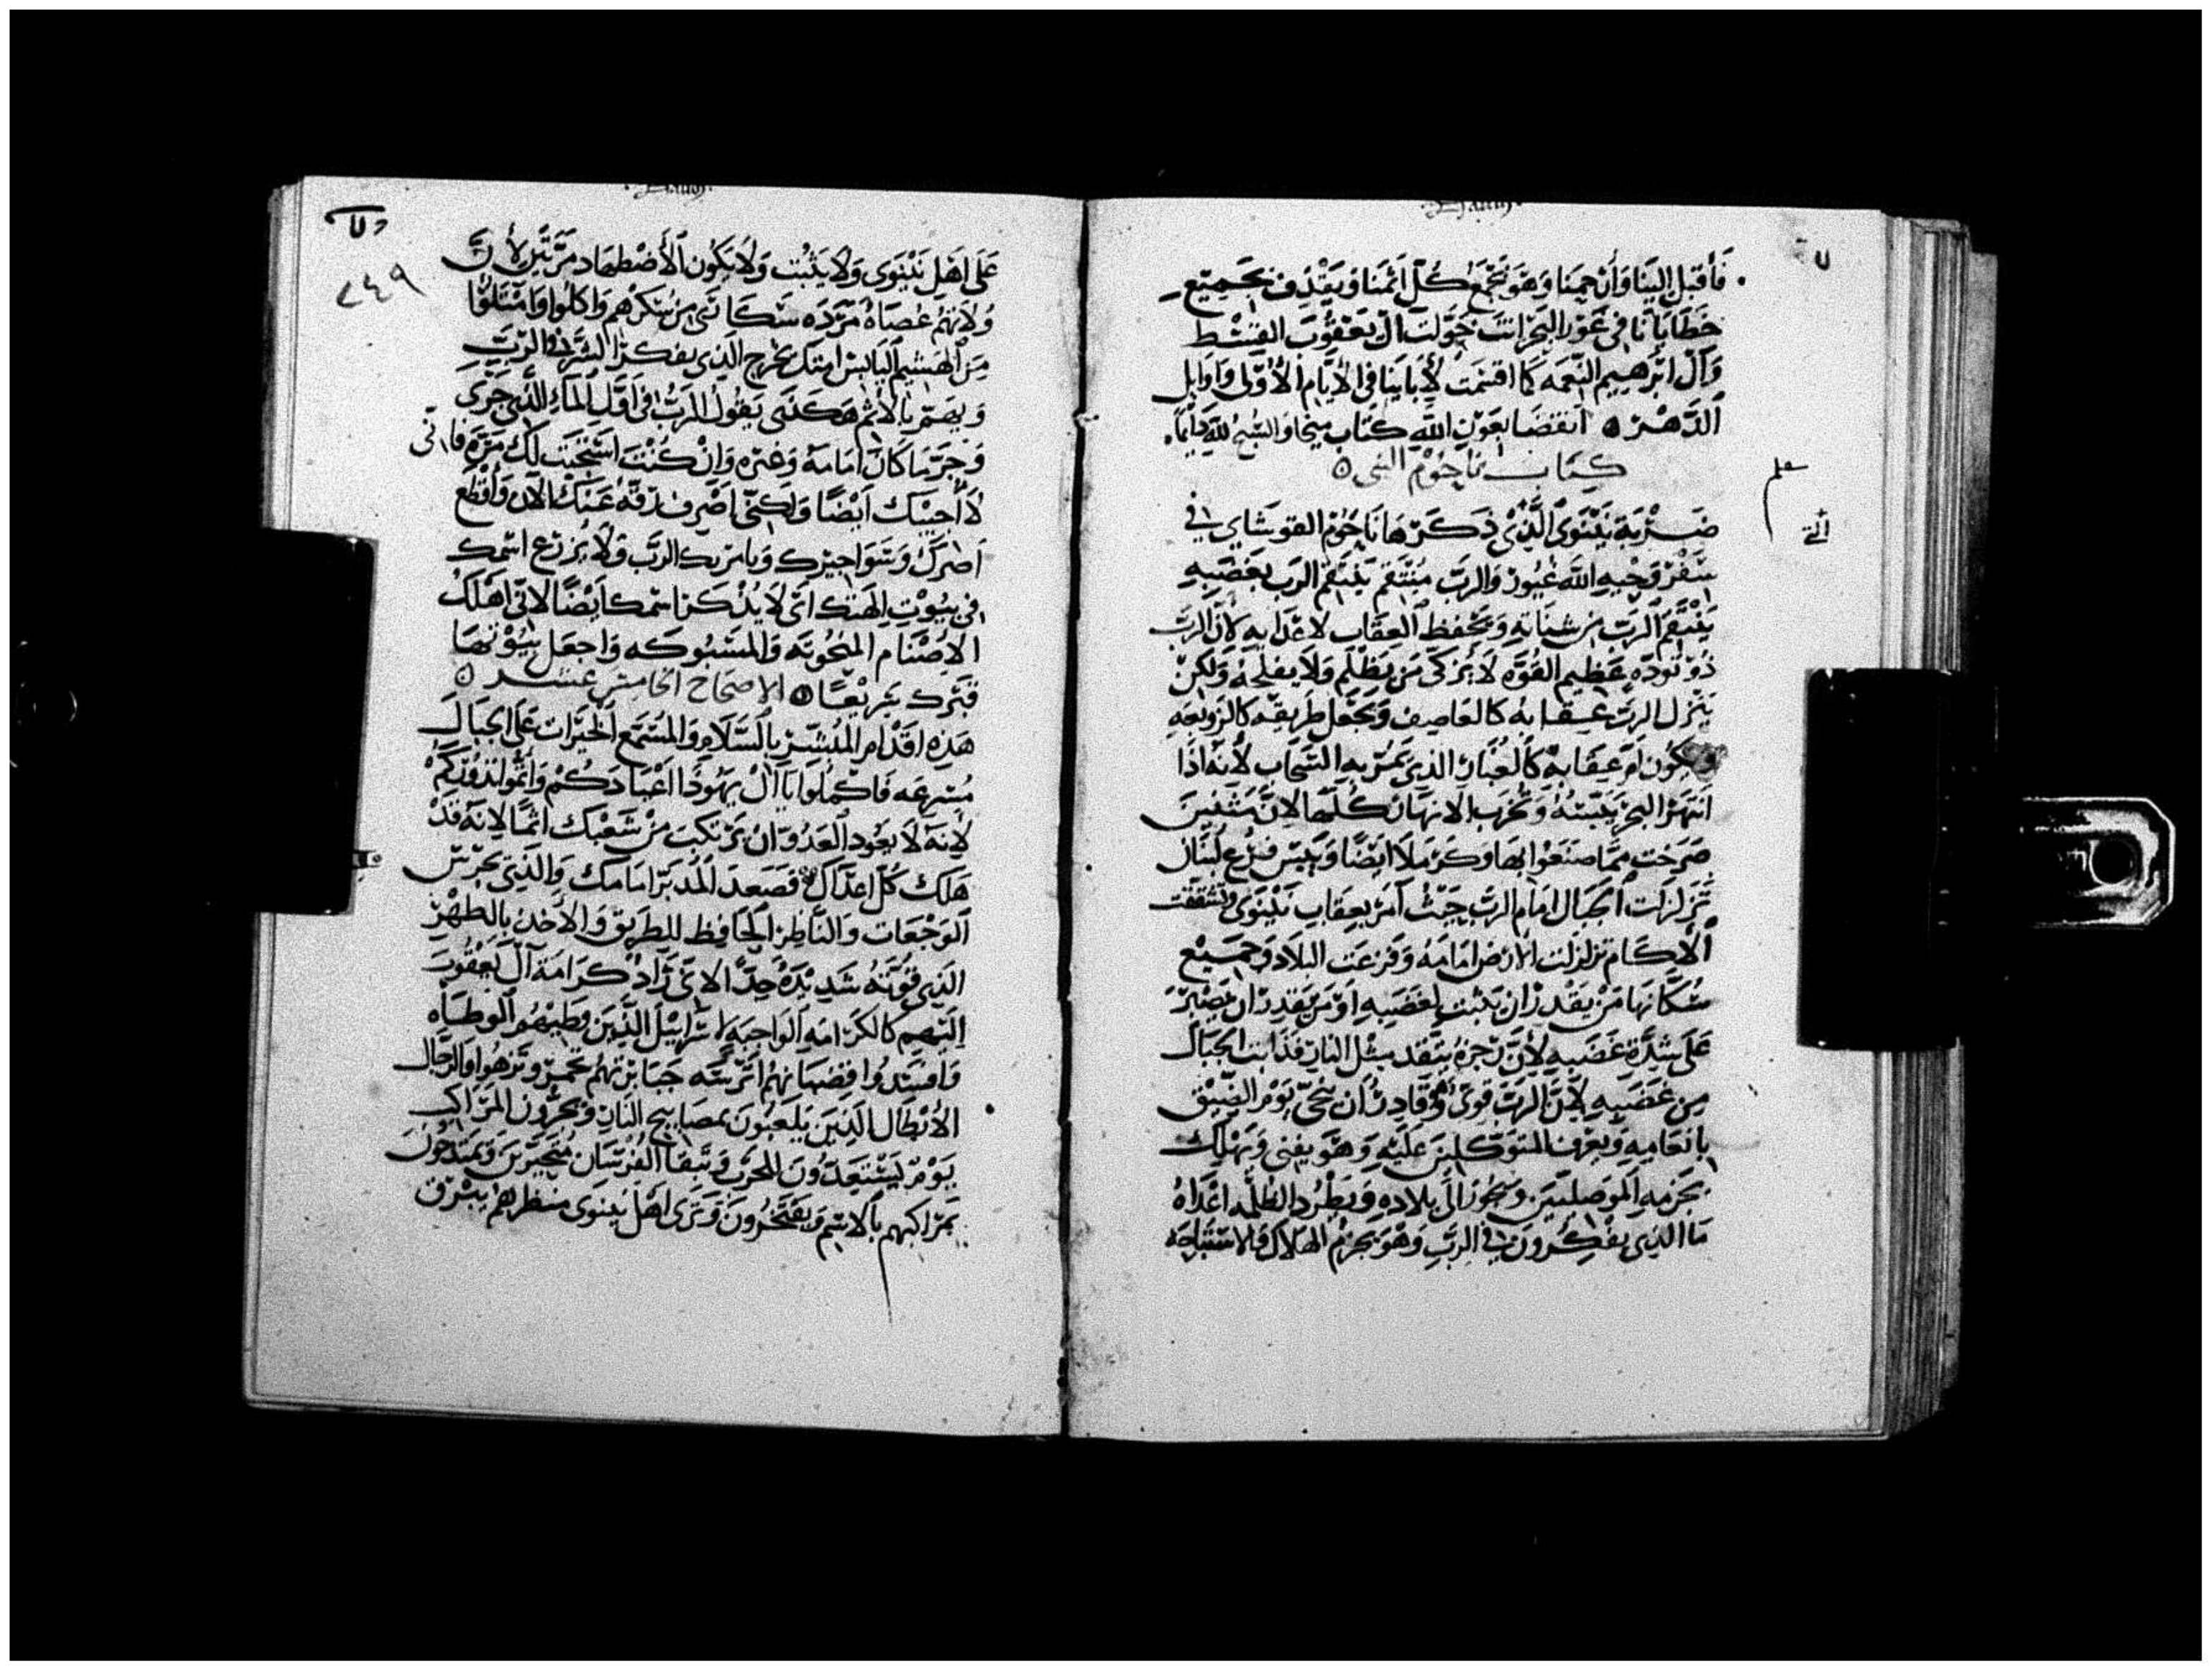 فاقبل الينا وارحمنا وهو يجمع كل اثمنا ويقذف بجميع
خطايانا في غور البحر انت خولت آل يعقوب القسط
وآل ابرهيم النعمه كما اقسمت لأباينا في الأيام الأولى واوايل
الدهر ٥ انقضا بعون الله كتاب ميخا والسبح لله دايماً
كتاب ناحوم النبي ٥
ضربة نينوى الذي ذكرها ناحوم القوشاي في
سفر وحيه الله غيور والرب منتقم ينتقم الرب بغضبه
ينتقم الرب من شناته ويحفظ العقاب لاعدايه لأن الرب
ذو توده عظيم القوه لا يزكى من يظلم ولا يفلحه ولكن
ينزل الرب عقابه كالعاصف ويجعل طريقه كالزوبعه
ويكون عقابه كالغبار الذي يمر به السحاب لأنه اذا
انتهر البحر يبسه ويخرب الانهار كلها لان
صرخت مما صنعوا بها وكرملا ايضا ويبس فرع لبنان
تزلزلت الجبال امام الرب حيث امر بعقاب نينوى وتشققت
الآكام تزلزلت الارض امامه وفزعت البلاد وجميع
سكانها من يقدر ان يثبت لغضبه او من يقدر ان يصبر
على شدة غضبه لأن زجره يتقد مثل النار قد ذابت الجبال
من غضبه لأن الرب قوي وقادر أن ينجي يوم الضيق
بانعامه ويعرف المتوكلين عليه وهو يفني ويهلك
بجرمه الموصليين ويجوز الى بلاده ويطرد الظلمه اعداه
ما الذي يفكرون في الرب وهو يجزم الهلاك
على اهل نينوى ولا يثبت ولا يكون الأضطهاد مرتين لأن
ولانهم عصاة مرده سكارى من سكرهم واكلوا وامتلوا
من الهشيم اليابس امتك يخرج الذي يفكر الشر في الرب
ويهتم بالاثم هكذى يقول الرب في اول الماء الذي جرى
وجر ما كان امامه وغيره وان كنت استجبت لك مرة فاني
لا أجيبك ايضًا ولكني اصرف رقه عنك الان وأقطع
اصرك ويامر بك الرب ولا يزرع اسمك
في بيوت الهتك اي لا يذكر اسمك ايضًا لاني اهلك
الاصنام المنحوته والمسبوكه واجعل بيوتها
قبرك سريعًا ٥ الاصحاح الخامس عشر ٥
هذه اقدام المبشر بالسلام والمسمع الخيرات على الجبال
مسرعه فاكملوا يا آل يهوذا اعيادكم وأتموا نذوركم
لانه لا يعود العدو ان يرتكب من شعبك اثمًا لانه قد
هلك كل اعداك قصعد المدبر امامك والذي يحرس
الوجعات والناظر الحافظ للطريق والاخذ بالطهر
الذي قوته شديدة جدًا الا انى زاد كرامة آل يعقوب
اليهم كالكرامه الواجبه لاسراييل الذين وطيهم الوطاه
وافسدوا قضبانهم اترسة جبابرتهم تحمر وتزهوا والرجال
الأبطال الذين يلعبون بمصابيح النار ويجرون المراكب
يوم يستعدون للحرب وتبقا الفرسان متحيرين ويمتدحون
بمراكبهم بالاسم ويفتخرون وترى اهل نينوى منظرهم يبرق
٢٤٩